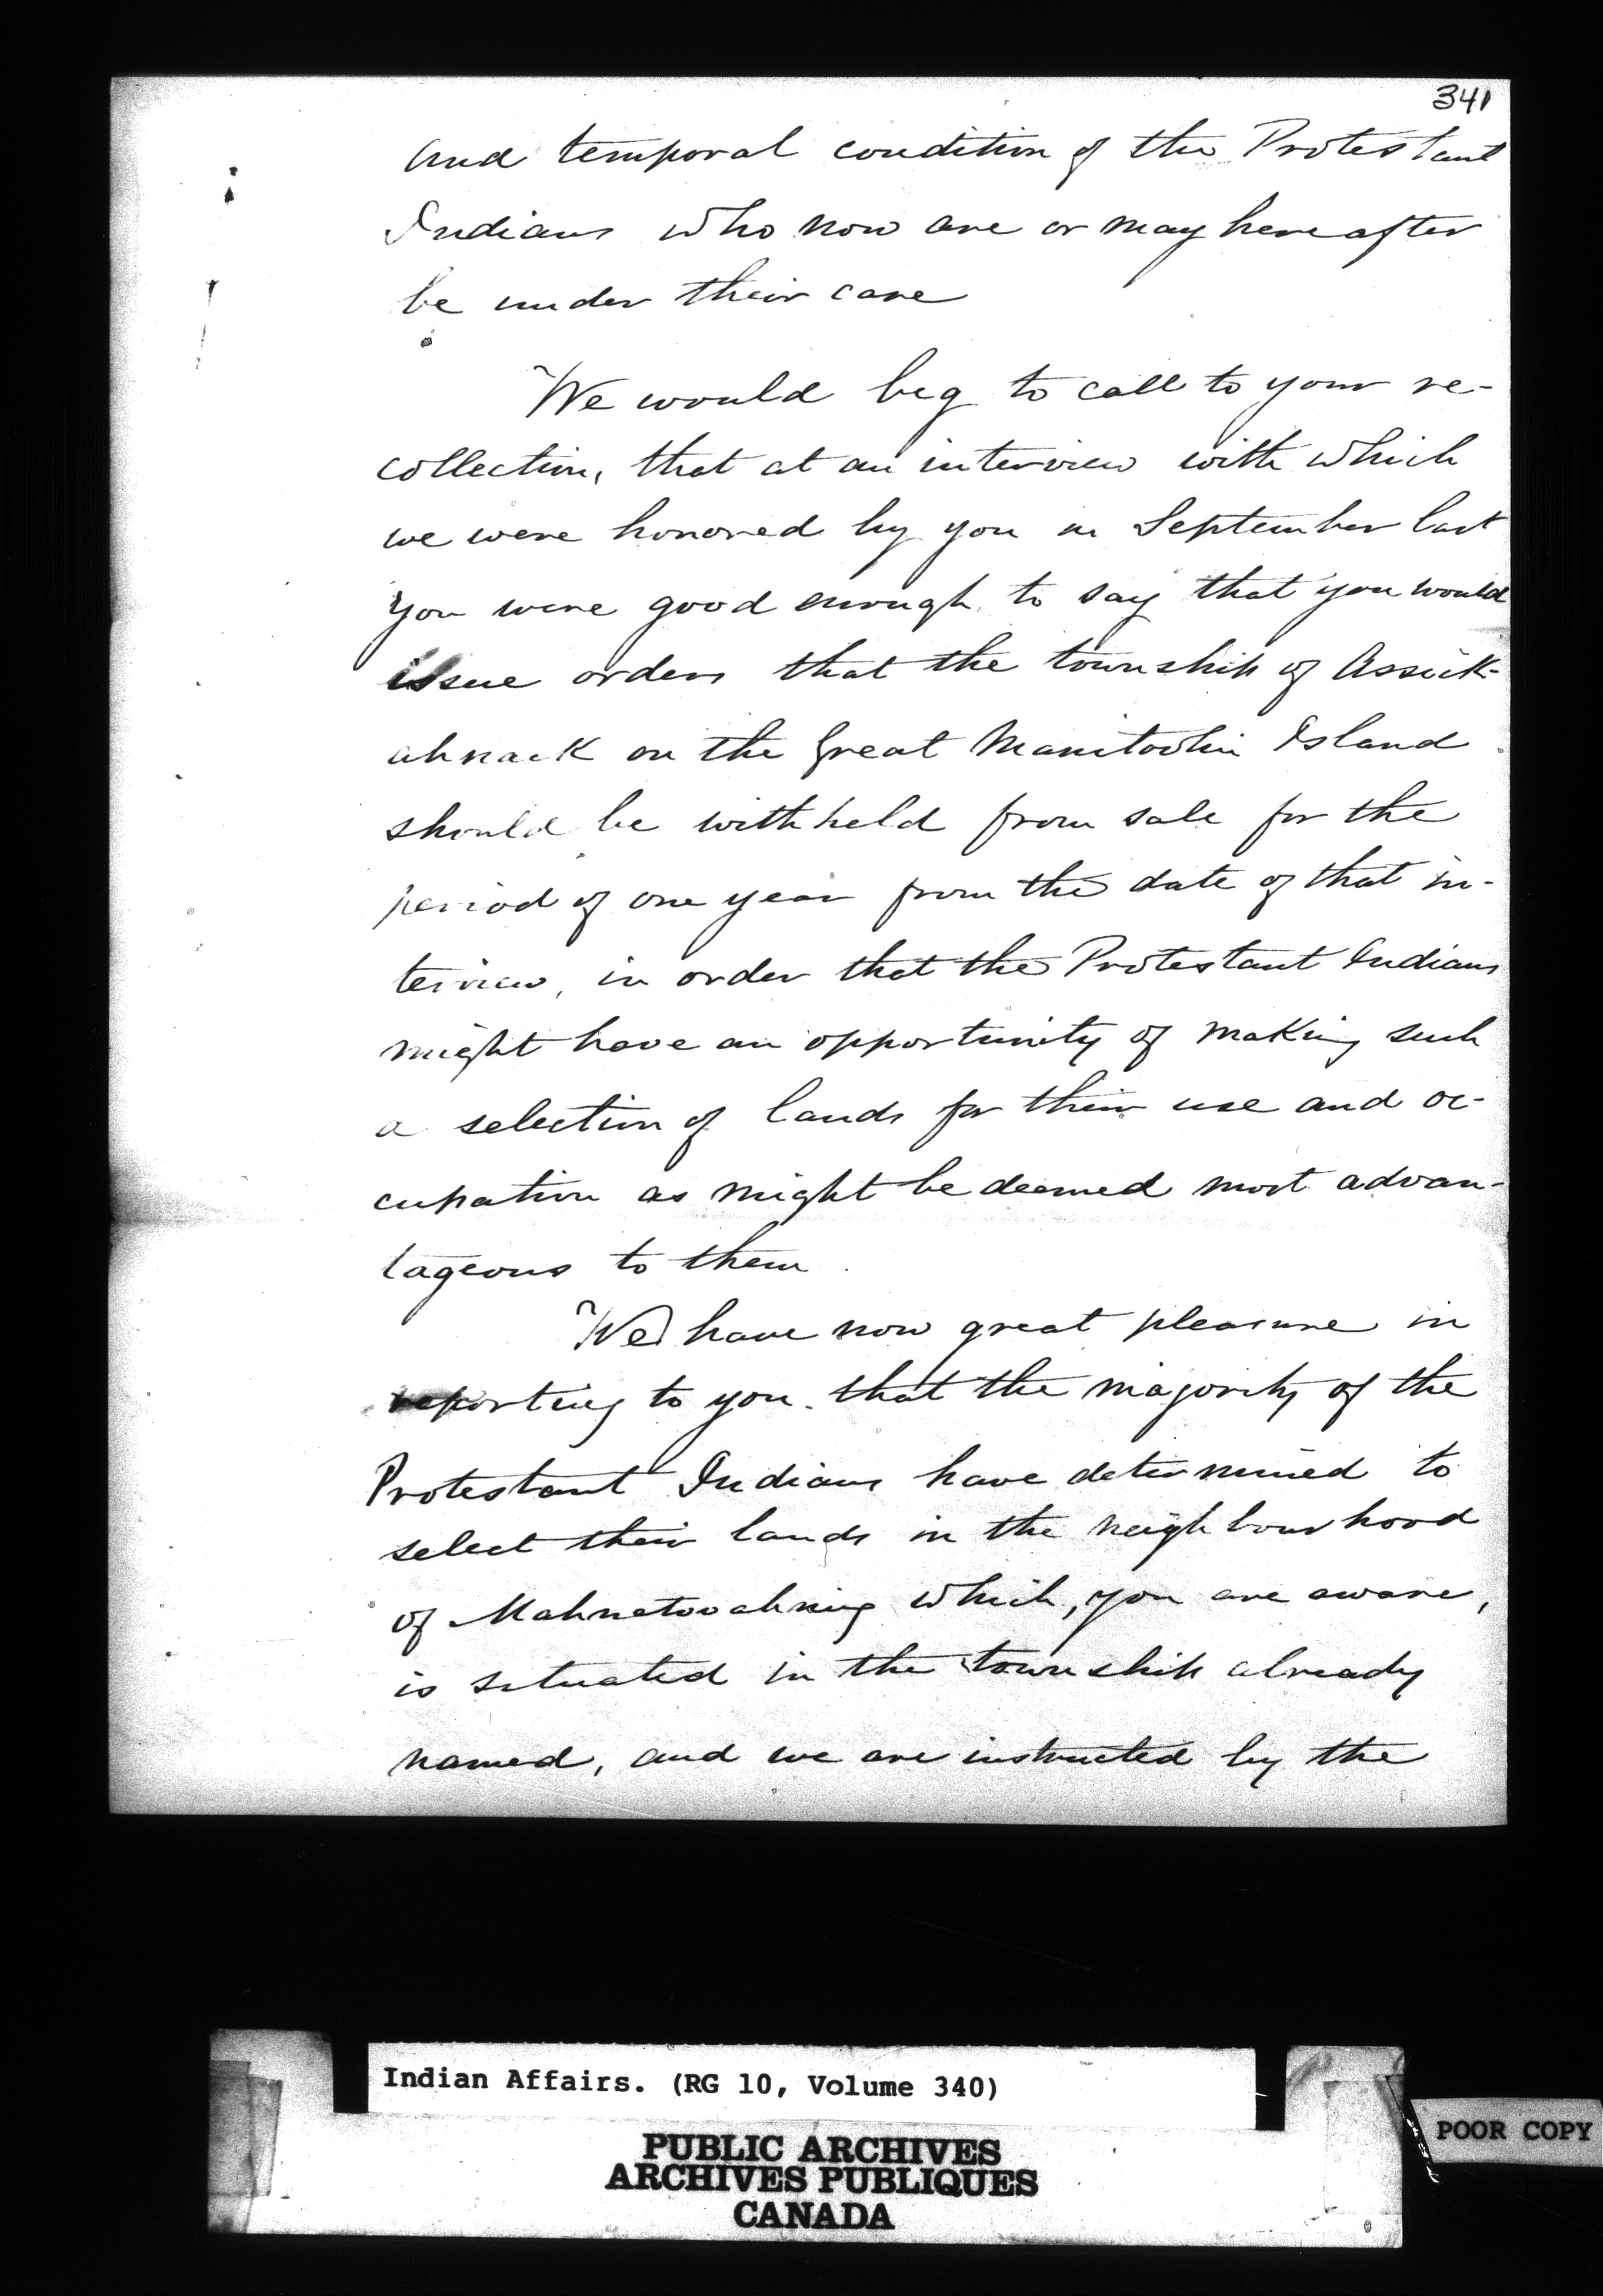 341
and temporal condition of the Protestant
Indians who now are or may hereafter
be under their care
We would beg to call to your re-
collection, that at an interview with which
we were honored by you in September last
you were good enough to say that you would
issue orders that the township of Assick-
ahnack on the Great Manitoolin Island
should be withheld from sale for the
period of one year from the date of that in-
terview, in order that the Protestant Indians
might have an opportunity of making such
a selection of lands for their use and oc-
cupation as might be deemed most advan-
tageous to them.
We have now great pleasure in
reporting to you that the majority of the
Protestant Indians have determined to
select their lands in the neighbourhood
of Mahnetooahning which, you are aware,
is situated in the township already
named, and we are instructed by the
Indian Affairs. (RG 10, Volume 340)
PUBLIC ARCHIVES
ARCHIVES PUBLIQUES
CANADA
POOR COPY